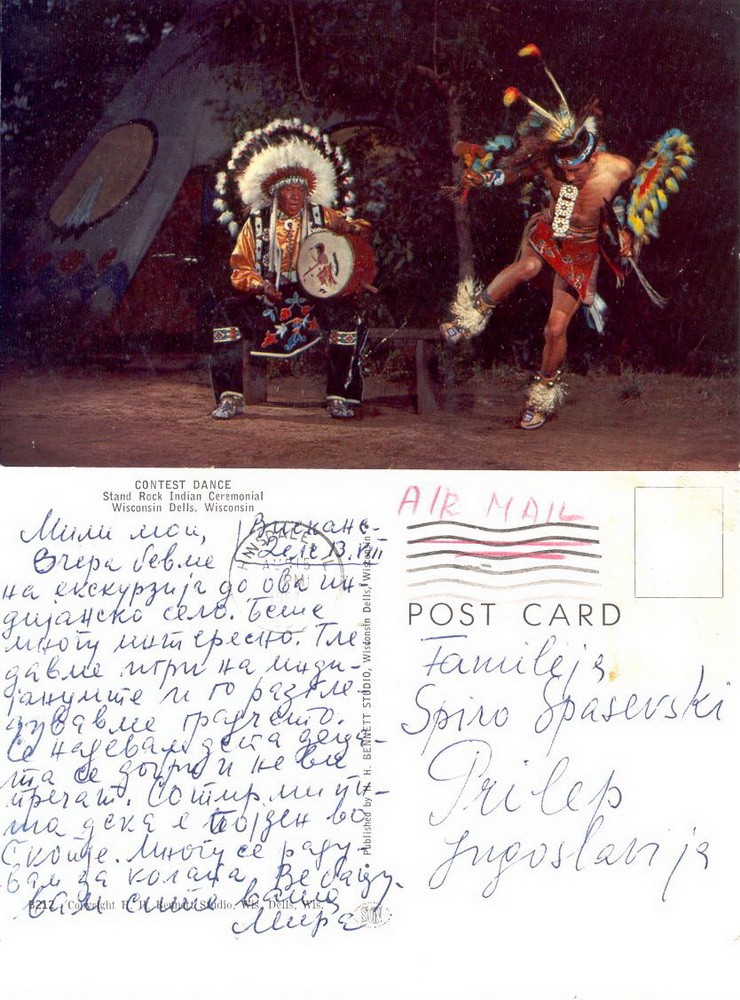 CONTEST DANCE
Stand Rock Indian Ceremonial
Wisconsin Dells, Wisconsin
Мили мои,
Висканс-
Делс 13.VIII
Вчера бевме
на екскурзија до ова ин-
дијанско село. Беше
многу интересно. Гле
давме игри на инди-
јанците и го разгле
дувавме градчето.
Се надевам дека деца-
та се добри и не ви
пречат. Сотир ми пи-
ша дека е појден во
Скопје. Многу се раду-
вам за колата. Ве бацу-
вам сите ваша
Мира
B212 Copyright H. H. Bennett Studio, Wis. Dells, Wis.
Published by H. H. BENNETT STUDIO, Wisconsin Dells, Wisconsin
HINSDALE
AUG 15
AIR MAIL
POST CARD
Familija
Spiro Spasevski
Prilep
Jugoslavija